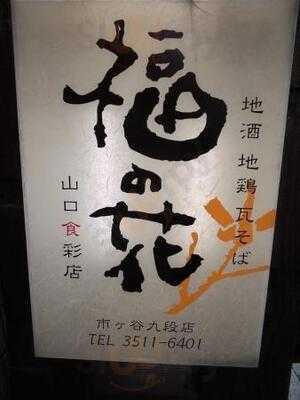 地酒 地鶏 瓦そば
福の花
山口食彩店
市ヶ谷九段店
TEL 3511-6401